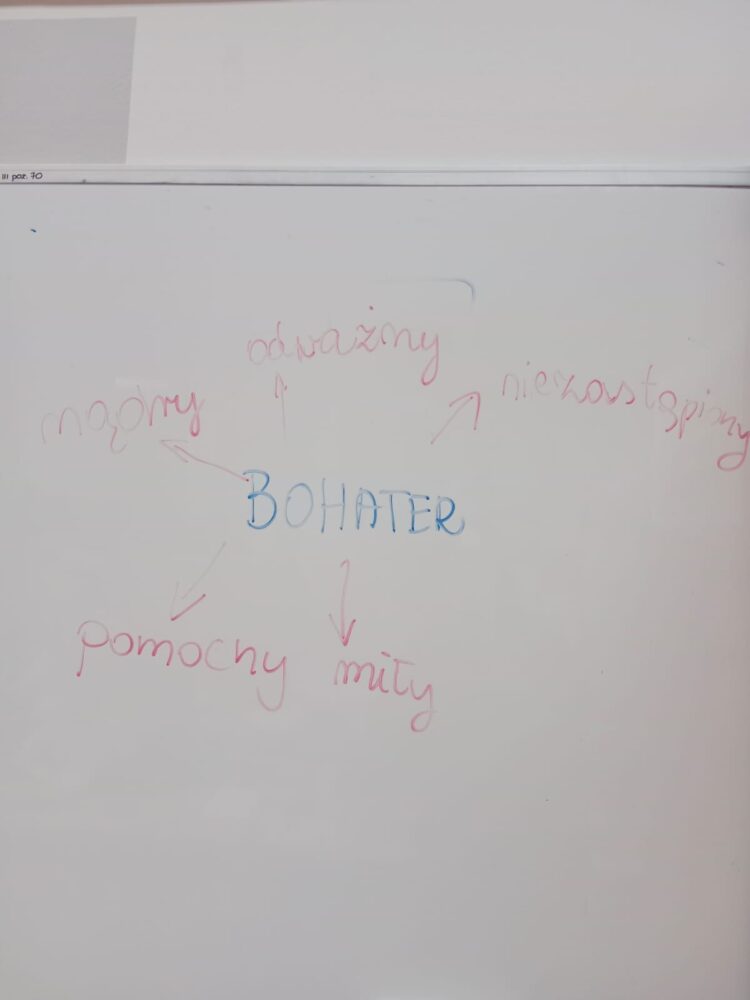 III poz. 70
odważny
niezastąpiony
mądry
BOHATER
pomocny
miły